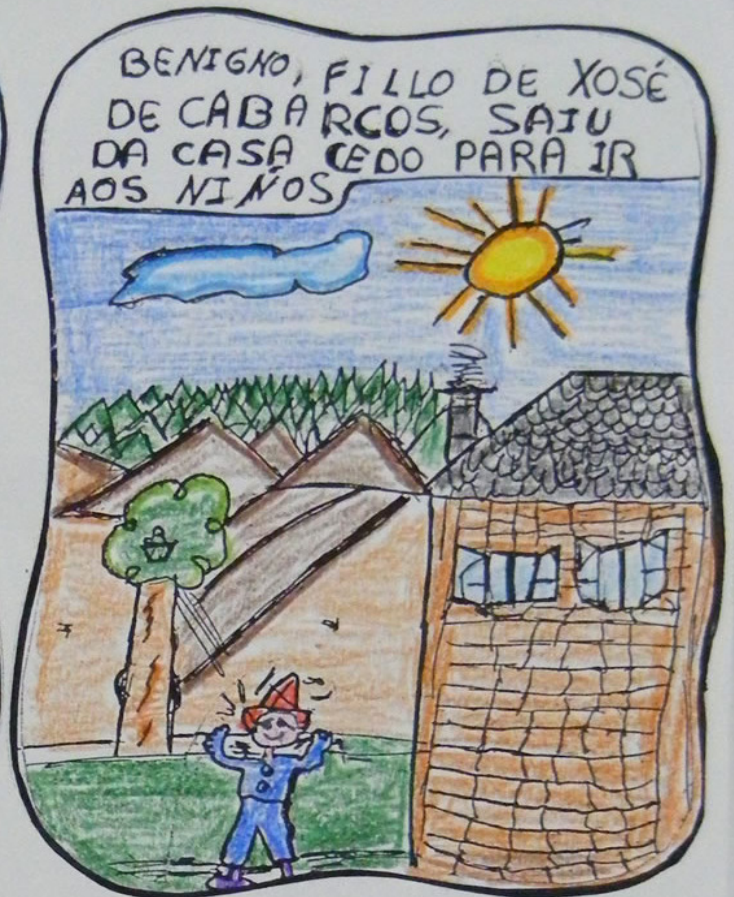 BENIGNO, FILLO DE XOSÉ
DE CABARCOS, SAIU
DA CASA CEDO PARA IR
AOS NIÑOS